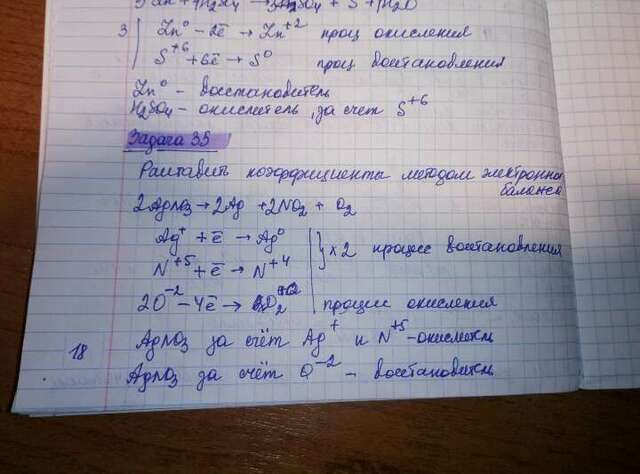 Zn + 4H₂SO₄ → 3ZnSO₄ + S + 4H₂O
3 | Zn⁰ – 2ē → Zn⁺² проц окисления
S⁺⁶ + 6ē → S⁰ проц востановления
Zn⁰ – восстановитель
H₂SO₄ – окислитель, за счет S⁺⁶
Задача 35
Раставить коэффициенты методом электронно
баланса
2AgNO₃ → 2Ag + 2NO₂ + O₂
Ag⁺ + ē → Ag⁰
N⁺⁵ + ē → N⁺⁴ } x 2 процесс востановления
2O⁻² – 4ē → O₂ процесс окисления
AgNO₃ за счёт Ag⁺ и N⁺⁵ – окислитель
18
AgNO₃ за счёт O⁻² – восстановитель